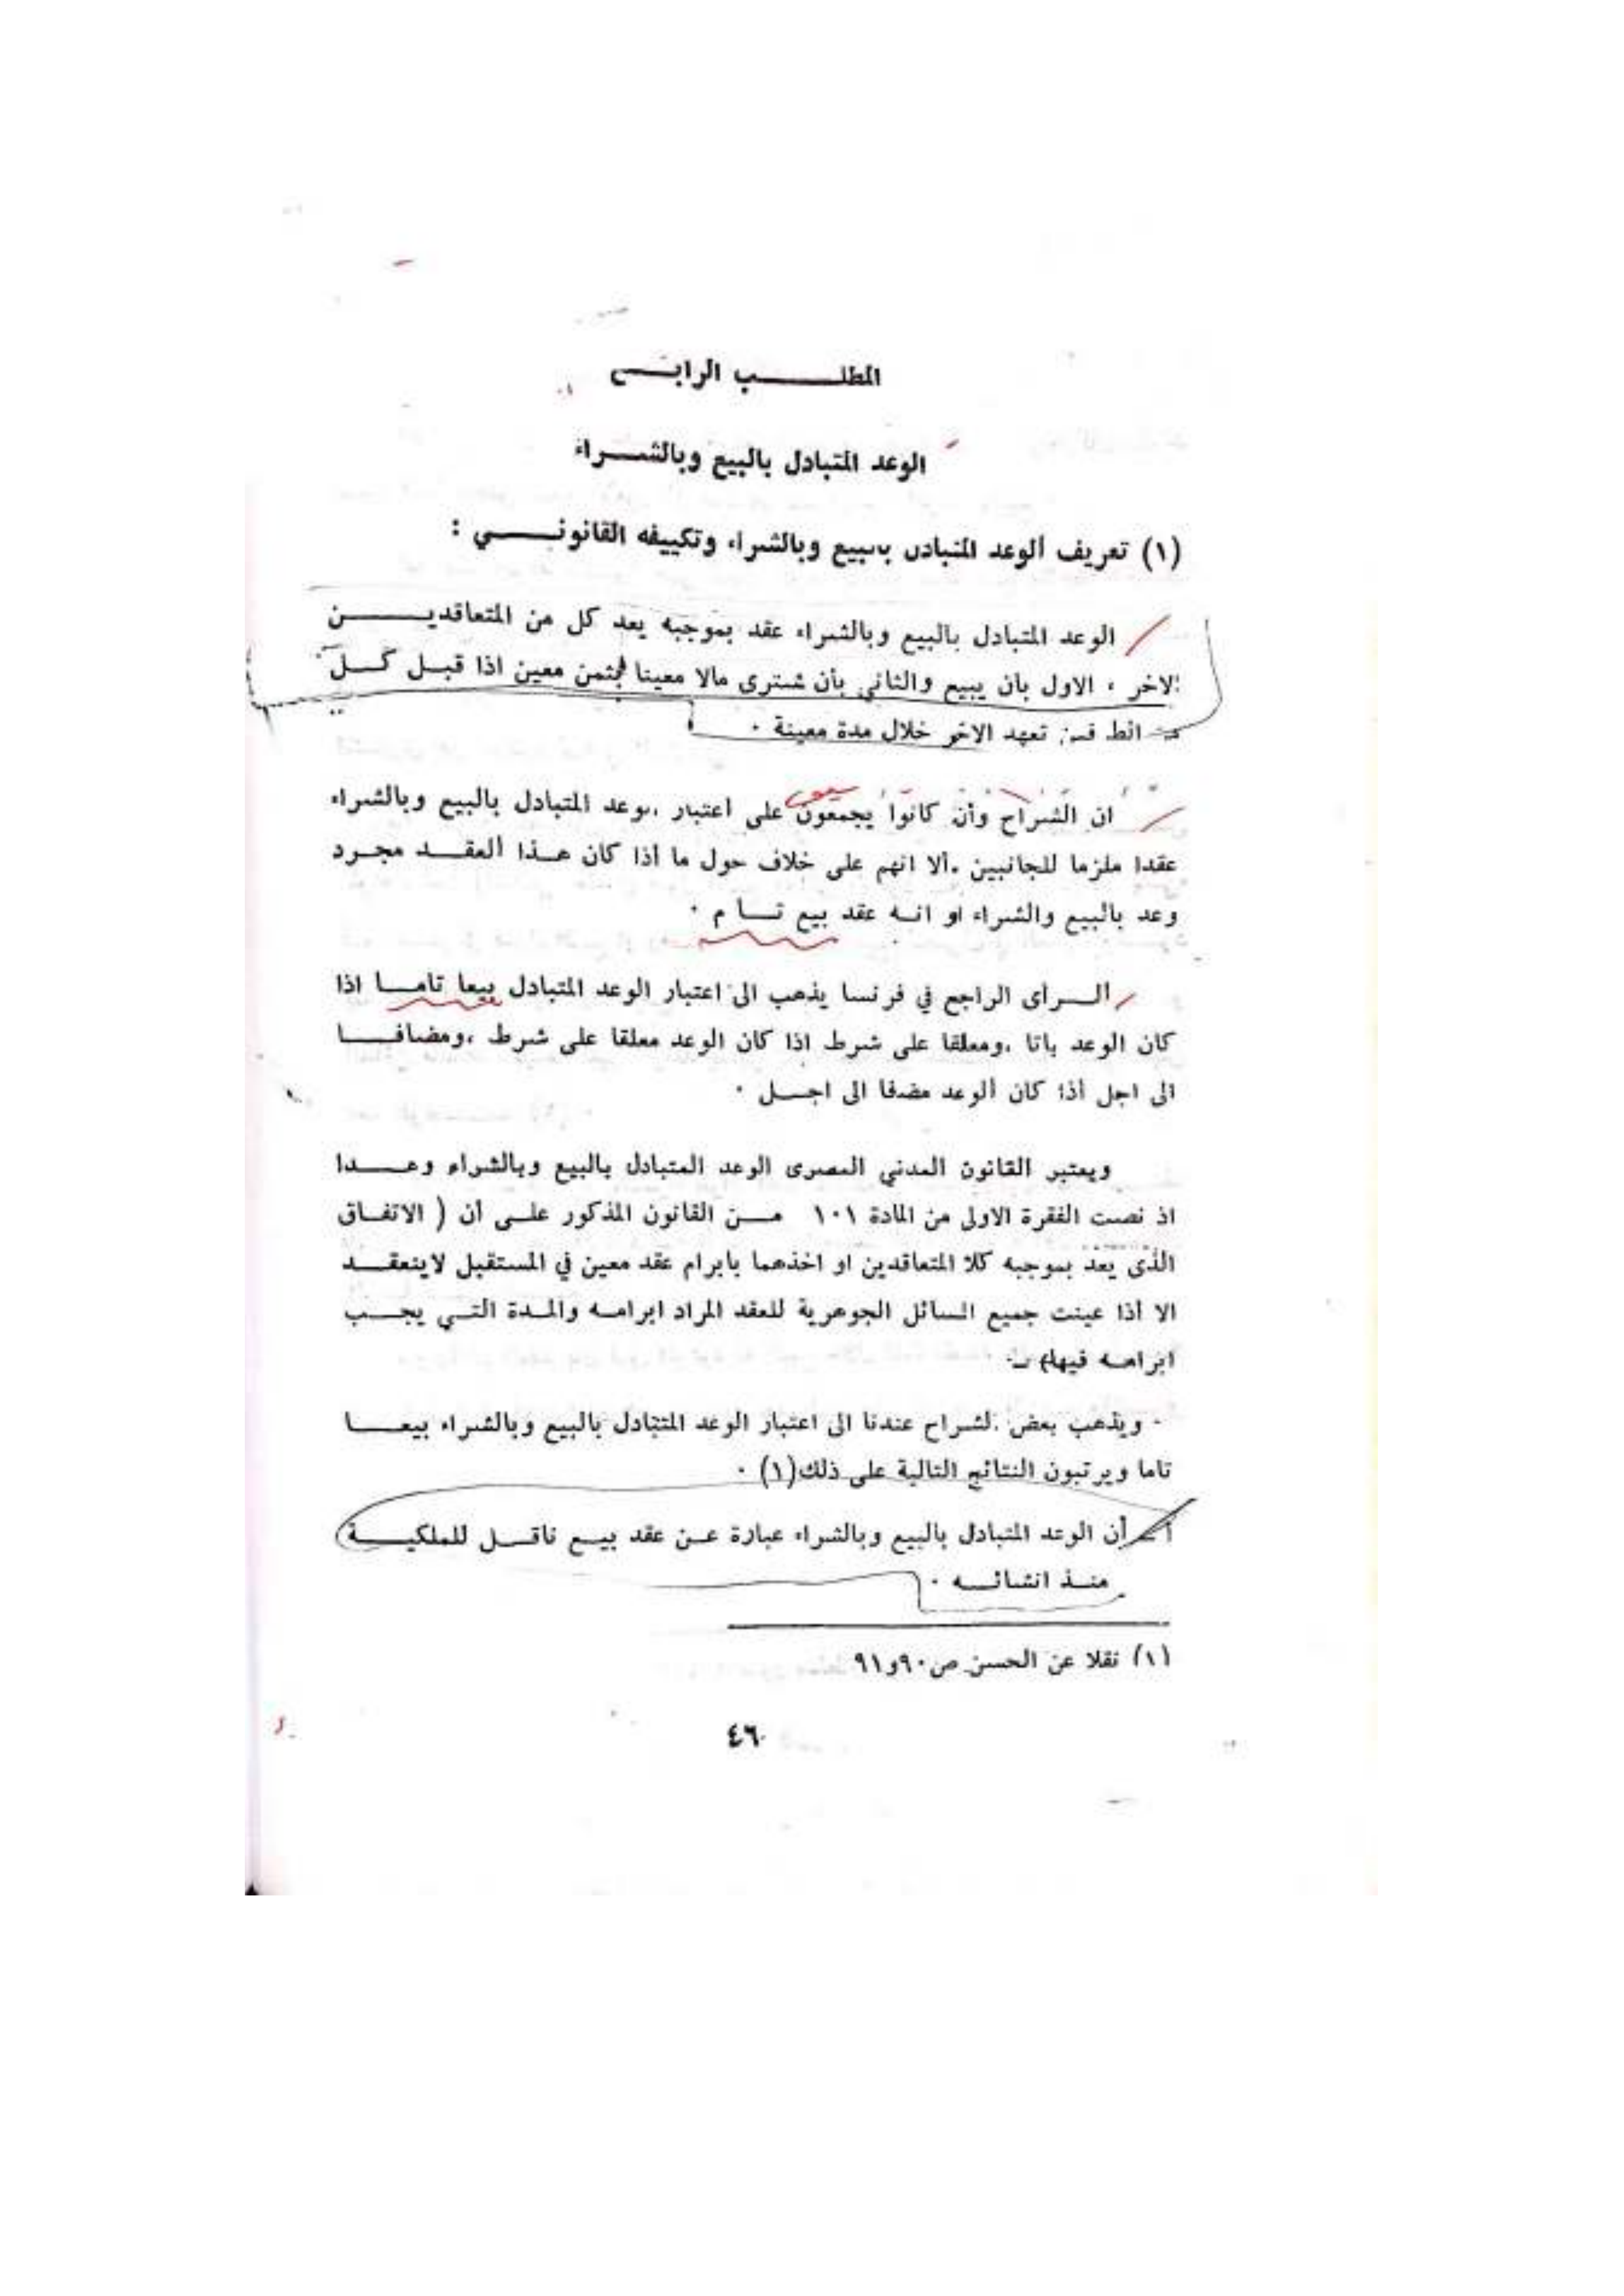 المطلب الرابع
الوعد المتبادل بالبيع وبالشراء
(١) تعريف الوعد المتبادل بالبيع وبالشراء وتكييفه القانوني :
الوعد المتبادل بالبيع وبالشراء عقد بموجبه يعد كل من المتعاقدين
الاخر ، الاول بأن يبيع والثاني بأن يشترى مالا معينا بثمن معين اذا قبل كل
تعهد الاخر خلال مدة معينة .
ان الشراح وأن كانوا يجمعون على اعتبار الوعد المتبادل بالبيع وبالشراء
عقدا ملزما للجانبين ،ألا انهم على خلاف حول ما أذا كان هذا العقد مجرد
وعد بالبيع والشراء او انه عقد بيع تام .
الرأى الراجع في فرنسا يذهب الى اعتبار الوعد المتبادل بيعا تاما اذا
كان الوعد باتا ،ومعلقا على شرط اذا كان الوعد معلقا على شرط ،ومضافا
الى اجل أذا كان ألوعد مضفا الى اجل .
ويعتبر القانون المدني المصرى الوعد المتبادل بالبيع وبالشراء وعدا
اذ نصت الفقرة الاولى من المادة ١٠١ من القانون المذكور على أن ( الاتفاق
الذى يعد بموجبه كلا المتعاقدين او اخذهما بابرام عقد معين في المستقبل لاينعقد
الا أذا عينت جميع السائل الجوهرية للعقد المراد ابرامه والمدة التي يجب
ابرامه فيها) .
ويذهب بعض الشراح عندنا الى اعتبار الوعد المتبادل بالبيع وبالشراء بيعا
تاما ويرتبون النتائج التالية على ذلك(١) .
أ ـ أن الوعد المتبادل بالبيع وبالشراء عبارة عن عقد بيع ناقل للملكية
منذ انشائه .
(١) نقلا عن الحسن ص٩٠و٩١
٤٦